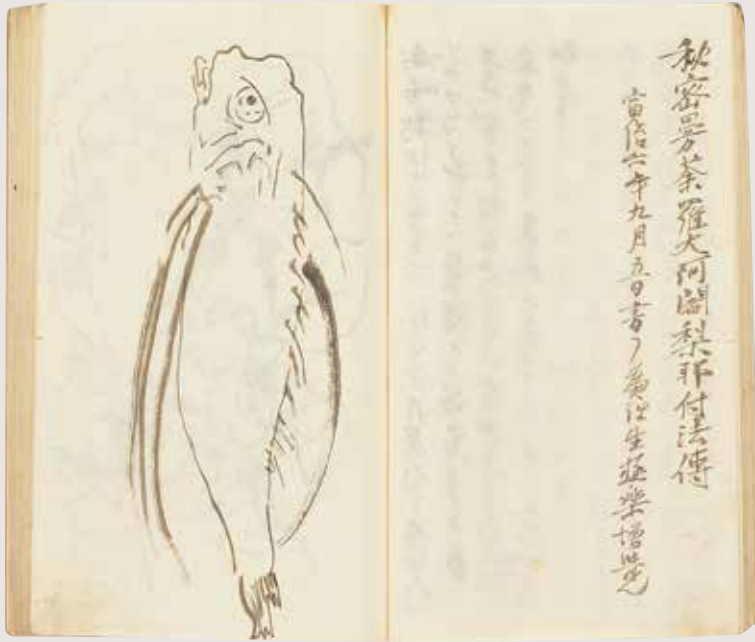 秘密曼荼羅大阿闍梨耶付法傳
富治六年九月五日書了 廣 往生極樂增覺